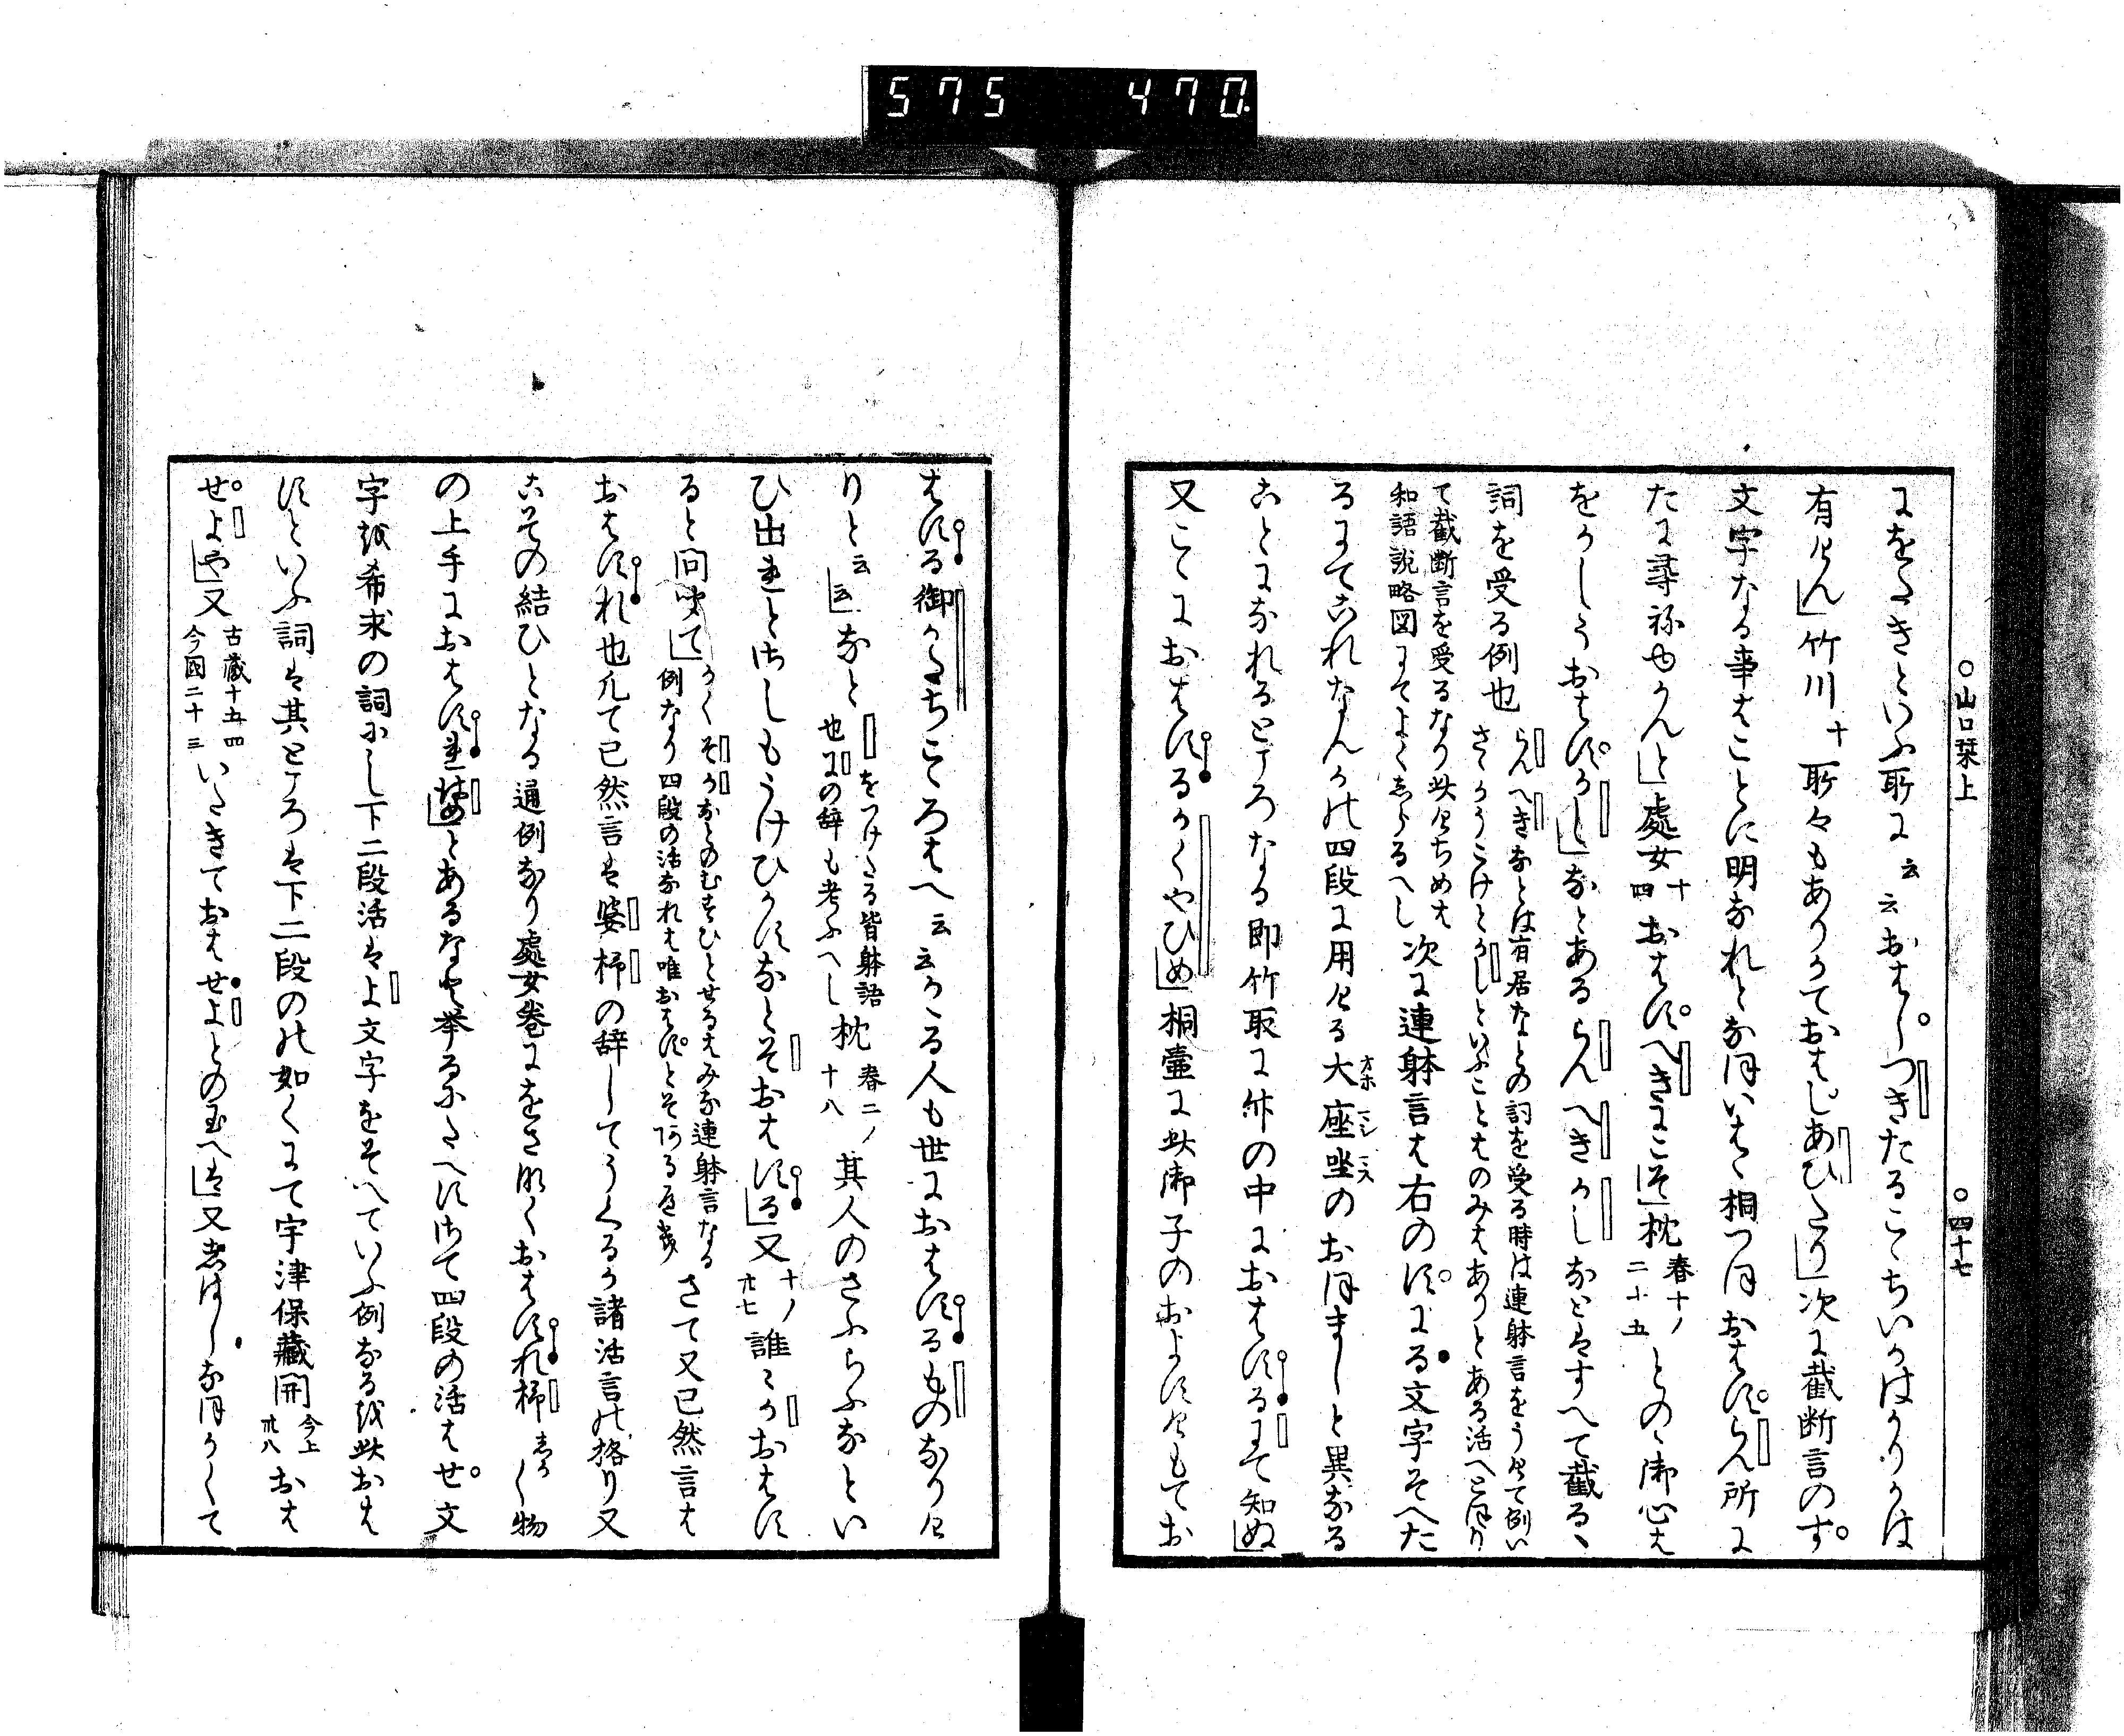 575 470
○山口栞上 ○四十七
にをかきといふ所に云云おはしつきたるこゝちいかはかりかは
有けん」竹川十所々もありておはしあひたり」次に截断言のす
文字なる事はことに明なれとなほいはゝ桐つほおはすらん所に
たに尋ねゆかんと」處女十四おはすへきにこそ」枕春十ノ二十五とのゝ御心は
をかしうおはすかし」なとあるらんへきかしなとはすへて截るゝ
詞を受る例也らんへきなとは有居なとの詞を受る時は連躰言をうけて例い
さゝかうこけとかしといふことはのみはありとある活へとほり
て截断言を受るなり此けちめは
和語説略図にてよくしらるへし次に連躰言は右のすにる文字そへた
るにてこれなんかの四段に用ける大座坐オホマシマスのおほましと異なる
ことになれるところなる即竹取に竹の中におはするにて知ぬ」
又こゝにおはするかくやひめ」桐壷に此御子のおよすけもてお
はする御かたちこゝろはへ云云かゝる人も世におはするものなりけ
りと云云」なと□をつけたる皆躰語
也にの辞も考ふへし枕春二ノ十八其人のさふらふなとい
ひ出れとけしもうけひかすなとそおはする」又十ノ廿七誰々かおはす
ると問せて」かくそかなとのむすひとせるはみな連躰言なる
例なり四段の活なれは唯おはすとそある也さて又已然言は
おはすれ也凡て已然言は婆杼の辞してうくるか諸活言の格り又
こその結ひとなる通例なり處女巻にをさなくおはすれ杼」しかし物
の上手におはすればめとあるなと挙るにたへすさて四段の活はせ文
字は希求の詞にし下二段活はよ文字をそへていふ例なるは此おは
すといふ詞は其ところは下二段のの如くにて宇津保藏開今上廿八おは
せよや」又古藏十五四今國二十三いたきておはせよとの玉へは」又しはしなほかくて